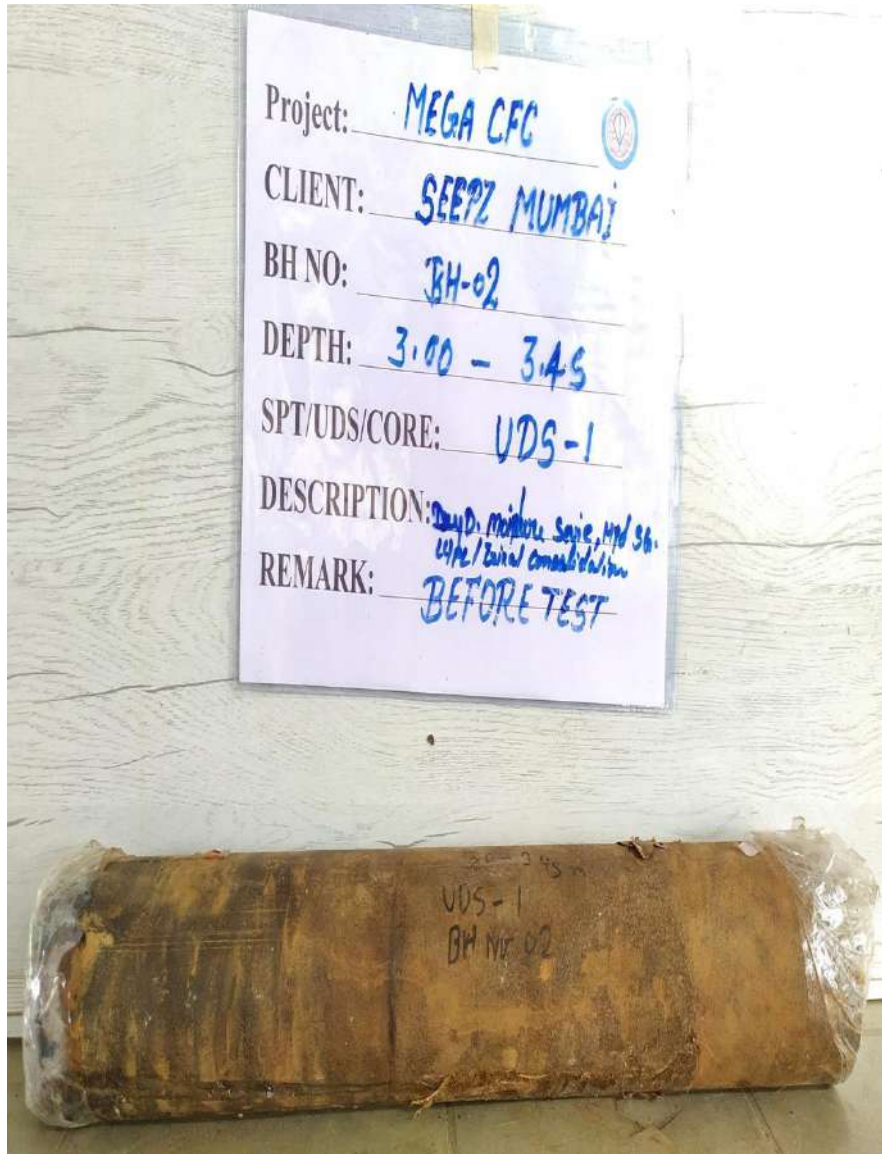 Project: MEGA CFC
CLIENT: SEEPZ MUMBAI
BH NO: BH-02
DEPTH: 3.00 - 3.45
SPT/UDS/CORE: UDS-1
DESCRIPTION: Moisture
REMARK: BEFORE TEST
UDS-1
BH No 02